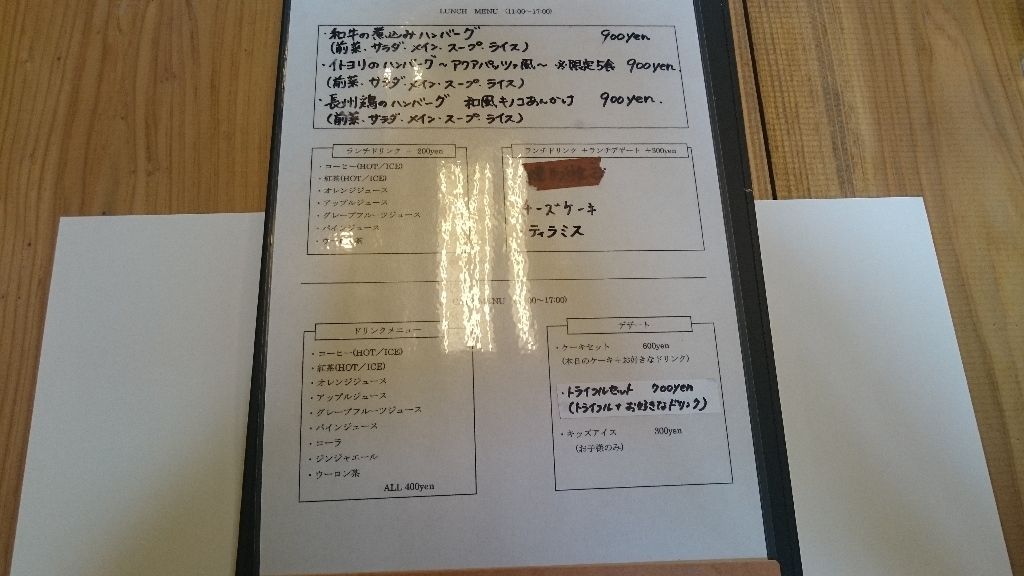 LUNCH MENU (11:00~17:00)
・和牛の煮込みハンバーグ 900yen
(前菜・サラダ・メイン・スープ・ライス)
・イトヨリのハンバーグ～アクアパッツァ風～ ※限定5食 900yen
(前菜・サラダ・メイン・スープ・ライス)
・長州鶏のハンバーグ 和風キノコあんかけ 900yen.
(前菜・サラダ・メイン・スープ・ライス)
ランチドリンク + 200yen
・コーヒー(HOT/ICE)
・紅茶(HOT/ICE)
・オレンジジュース
・アップルジュース
・グレープフルーツジュース
・パインジュース
・ウーロン茶
ランチドリンク +ランチデザート +300yen
チーズケーキ
ティラミス
MENU 00~17:00)
ドリンクメニュー
・コーヒー(HOT/ICE)
・紅茶(HOT/ICE)
・オレンジジュース
・アップルジュース
・グレープフルーツジュース
・パインジュース
・コーラ
・ジンジャエール
・ウーロン茶
ALL 400yen
デザート
・ケーキセット 600yen
(本日のケーキ+お好きなドリンク)
・トライフルセット 700yen
(トライフル+お好きなドリンク)
・キッズアイス 300yen
(お子様のみ)